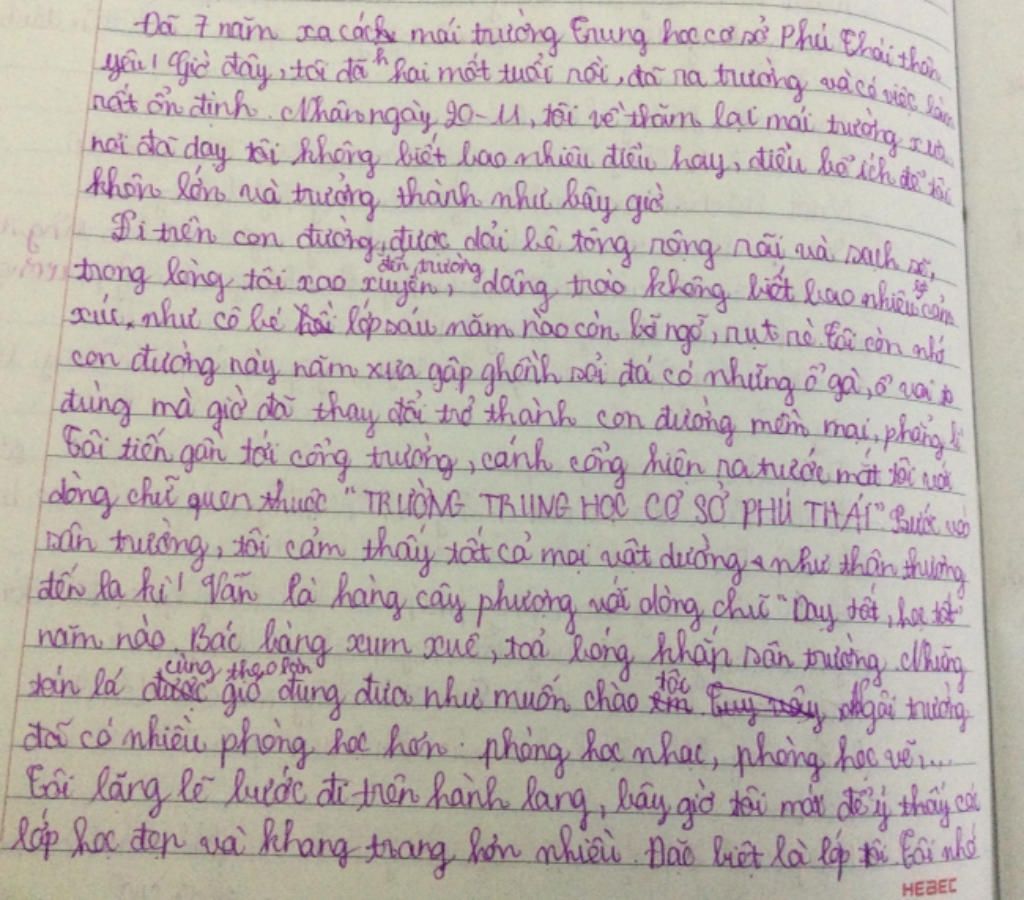 Đã 7 năm xa cách mái trường Trung học cơ sở Phú Thái thân
yêu! Giờ đây, tôi đã hai mốt tuổi rồi, đã ra trường và có việc làm
rất ổn định. Nhân ngày 20-11, tôi về thăm lại mái trường xưa,
nơi đã dạy tôi không biết bao nhiêu điều hay, điều bổ ích để tôi
khôn lớn và trưởng thành như bây giờ
Đi trên con đường đến trường được dải bê tông rộng rãi và sạch sẽ,
trong lòng tôi xao xuyến, dâng trào không biết bao nhiêu cảm
xúc, như cô bé lớp sáu năm nào còn bỡ ngỡ, rụt rè. Tôi còn nhớ
con đường này năm xưa gập ghềnh sỏi đá có những ổ gà, ổ voi to
đùng mà giờ đã thay đổi trở thành con đường mềm mại, phẳng lì
Tôi tiến gần tới cổng trường, cánh cổng hiện ra trước mắt tôi với
dòng chữ quen thuộc "TRƯỜNG TRUNG HỌC CƠ SỞ PHÚ THÁI" Bước vào
sân trường, tôi cảm thấy tất cả mọi vật dường như thân thương
đến lạ kì! Vẫn là hàng cây phượng với dòng chữ "Dạy tốt, học tốt"
năm nào. Bác bàng xum xuê, toả bóng khắp sân trường. Những
tán lá cùng theo làn gió đung đưa như muốn chào tôi. Ngôi trường
đã có nhiều phòng học hơn: phòng học nhạc, phòng học vẽ,...
Tôi lặng lẽ bước đi trên hành lang, bây giờ tôi mới để ý thấy các
lớp học đẹp và khang trang hơn nhiều. Đặc biệt là lớp tôi. Tôi nhớ
HEBEC